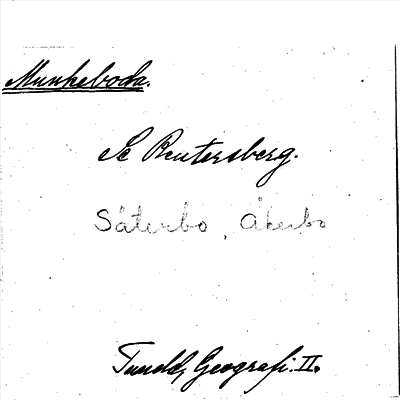 Munkeboda.
Se Reutersberg.
Säterbo, Åkerbo
Tuneld, Geografi. II.